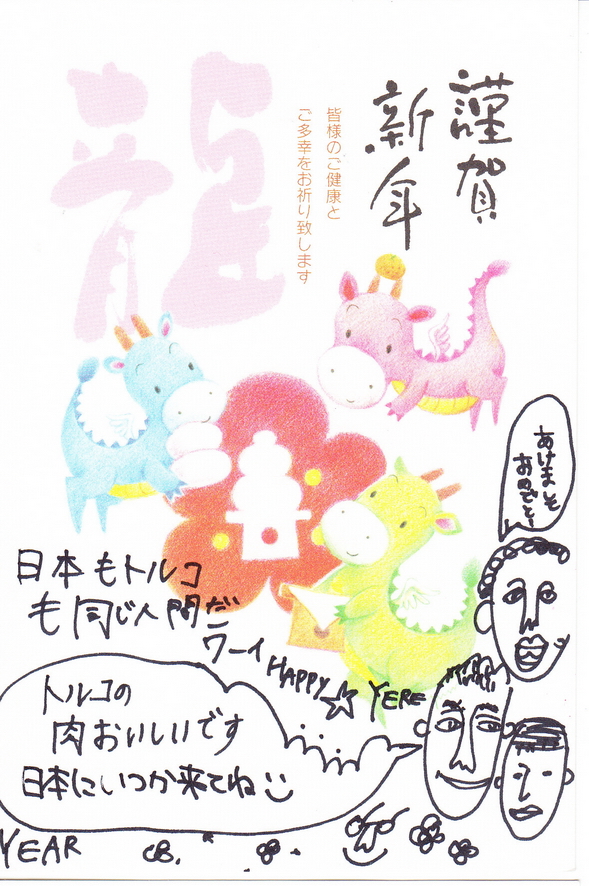 謹賀
新年
皆様のご健康と
ご多幸をお祈り致します
龍
あけまして
おめでとう
日本もトルコ
も同じ人間だ
ワーイ HAPPY☆YERE
トルコの
肉おいしいです
日本にいつか来てね
YEAR